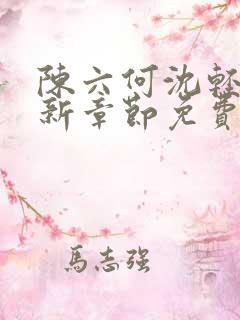 陳六何沈輕
新章節免費
馬志強